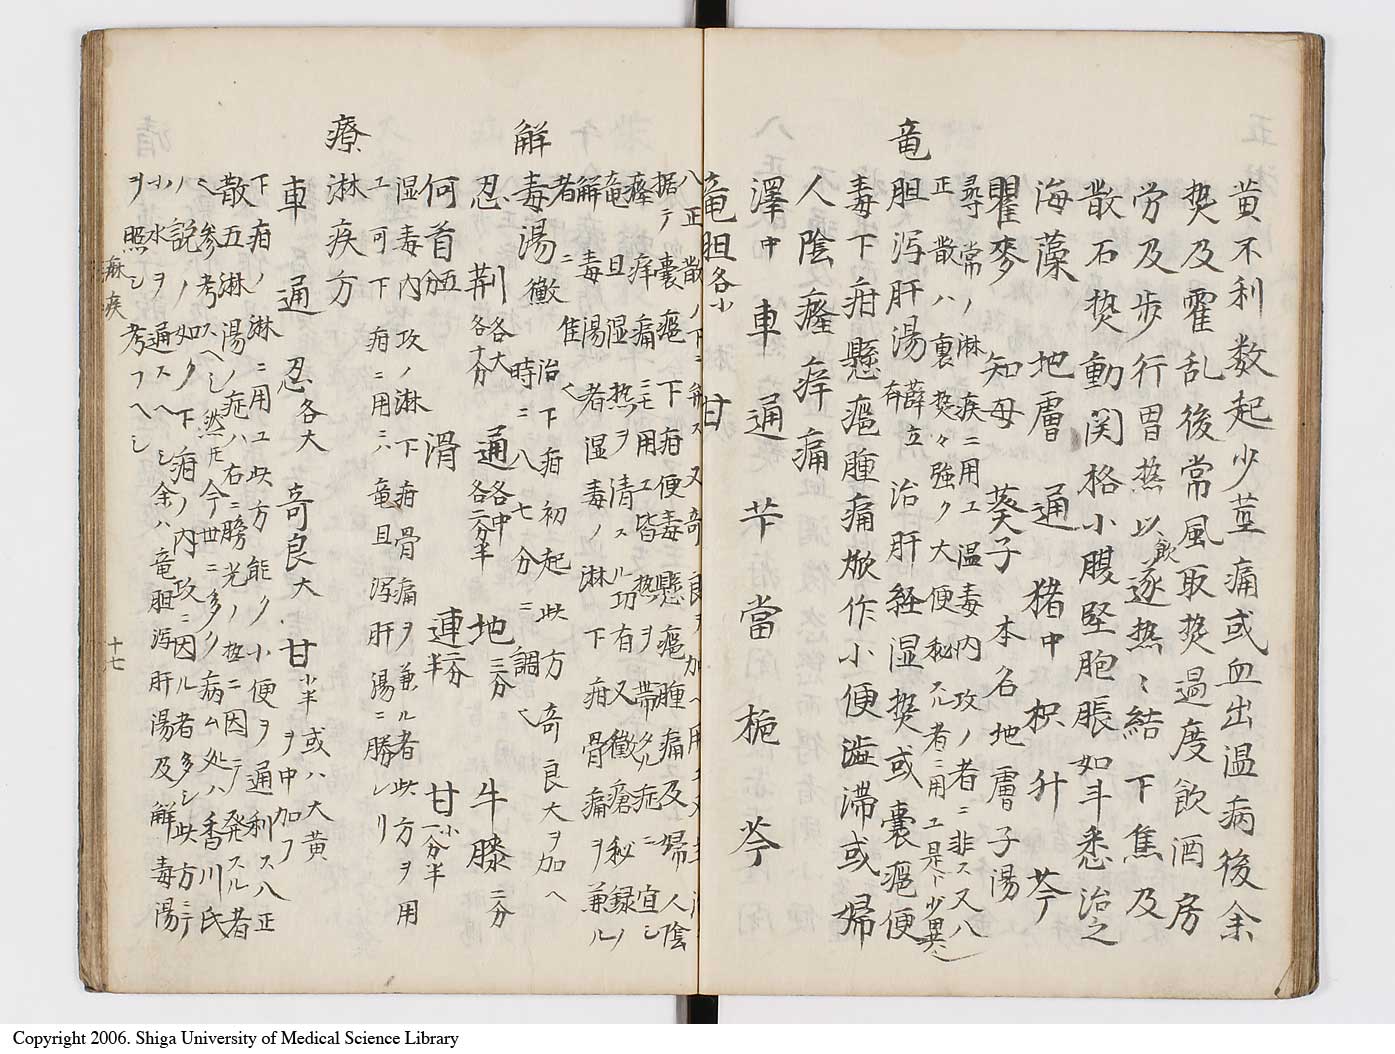 黄不利数起少莖痛或血出温病後余
焚及霍乱後常風取焚過度飲酒房
労及歩行冒熱以飲逐熱〻結下焦及
散石焚動関格小腹堅胞脹如斗悉治之
海藻 地膚 通 猪中 枳 升 芩
瞿麥 知母 葵子 本名地膚子湯
尋常ノ淋疾ニ用エ温毒内攻ノ者ニ非ス又八
正散ハ裏焚々強ク大便秘スル者ニ用エ是ト少異
竜
胆泻肝湯 薛立 治肝経湿焚或嚢癰便
毒下疳懸癰腫痛焮作小便澁滞或婦
人陰癃痒痛
澤中 車 通 芐 當 梔 芩
竜胆各小 甘
八正散ノ下ニ弁ス又奇良ヲ加ヘ用
据テ嚢癰下疳便毒懸癰腫痛及婦人陰
癃痒痛ニモ用エ皆熱ヲ帯タル症ニ宣シ
竜且湿熱ヲ清スル功有又黴瘡秘録ノ
解毒湯者湿毒ノ淋下疳骨痛ヲ兼ル
者ニ隹
解
毒湯黴 治下疳初起此方奇良大ヲ加ヘ
時ニ八七分ニ調
忍 荊 各大各十分 通 各中各二分半 地 三分 牛膝 二分
何首五分 滑 連二分半 甘小一分半
湿毒内攻ノ淋下疳骨痛ヲ兼ル者此方ヲ用
エ可下疳ニ用ニハ竜且泻肝湯ニ勝レリ
療
淋疾方
車 通 忍各大 奇良大 甘小半 或ハ大黄ヲ中加フ
下疳ノ淋ニ用ユ此方能ク小便ヲ通利ス八正
散五淋湯ノ症ハ右ニ膀光ノ熱ニ因テ発スル者
ヘ参考スヘシ然𪜈今世ニ多ク病ム処ハ香川氏
ノ説ノ如ク下疳ノ内攻ニ因ル者多シ此方ニテ
小水ヲ通スヘシ余ハ竜胆泻肝湯及解毒湯
ヲ照シ考フヘシ
痳疾
十七
Copyright 2006. Shiga University of Medical Science Library